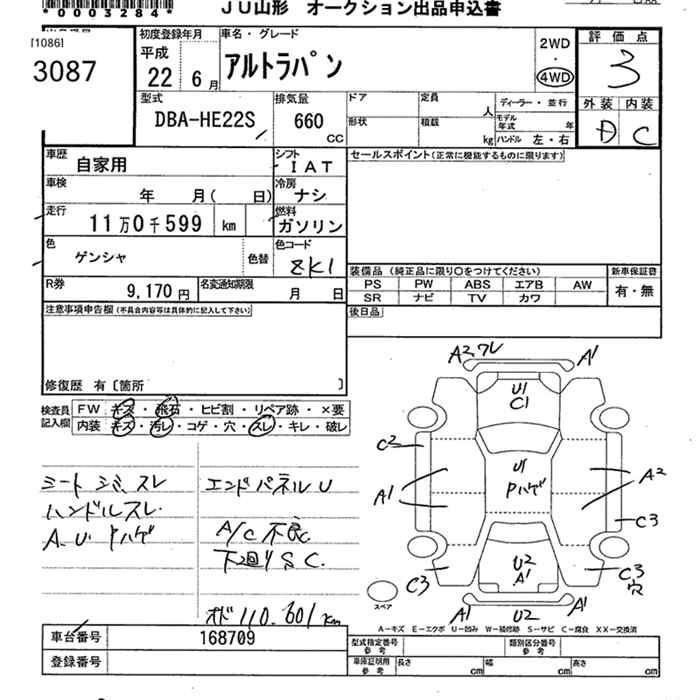 *0003284*
JU山形 オークション出品申込書
[1086]
3087
初度登録年月
平成
22年 6月
車名・グレード
アルトラパン
2WD
・
4WD
評価点
3
外装 内装
D C
型式
DBA-HE22S
排気量
660
CC
ドア
形状
定員
人
積載
kg
ディーラー・並行
モデル年式 年
ハンドル 左・右
車歴
自家用
シフト
IAT
車検
年 月( 日)
冷房
ナシ
走行
11万0千599 km
燃料
ガソリン
色
ゲンシャ
色替
色コード
ZK1
R券
9,170円
名変通知期限
月 日
セールスポイント(正常に機能するものに限ります)
装備品 (純正品に限り○をつけてください)
PS PW ABS エアB AW
SR ナビ TV カワ
新車保証書
有・無
後日品
注意事項申告欄(不具合内容等は具体的に記入して下さい)
修復歴 有〔箇所 〕
検査員記入欄
FW キズ・飛石・ヒビ割・リペア跡・×要
内装 キズ・汚レ・コゲ・穴・スレ・キレ・破レ
シートシミ、スレ
ハンドルスレ
A.U.Pハゲ
エンドパネルU
A/C不良
下回りS.C.
オド110.601km
A2ワレ
A1
U1
C1
C2
U1
Pハゲ
A1
A2
C3
U2
A1
C3
C3
穴
A1
U2
A1
スペア
A-キズ E-エクボ U-凹み W-補修跡 S-サビ C-腐食 XX-交換済
車台番号
168709
登録番号
型式指定番号
参考
類別区分番号
参考
車庫証明用
参考
長さ
cm
幅
cm
高さ
cm